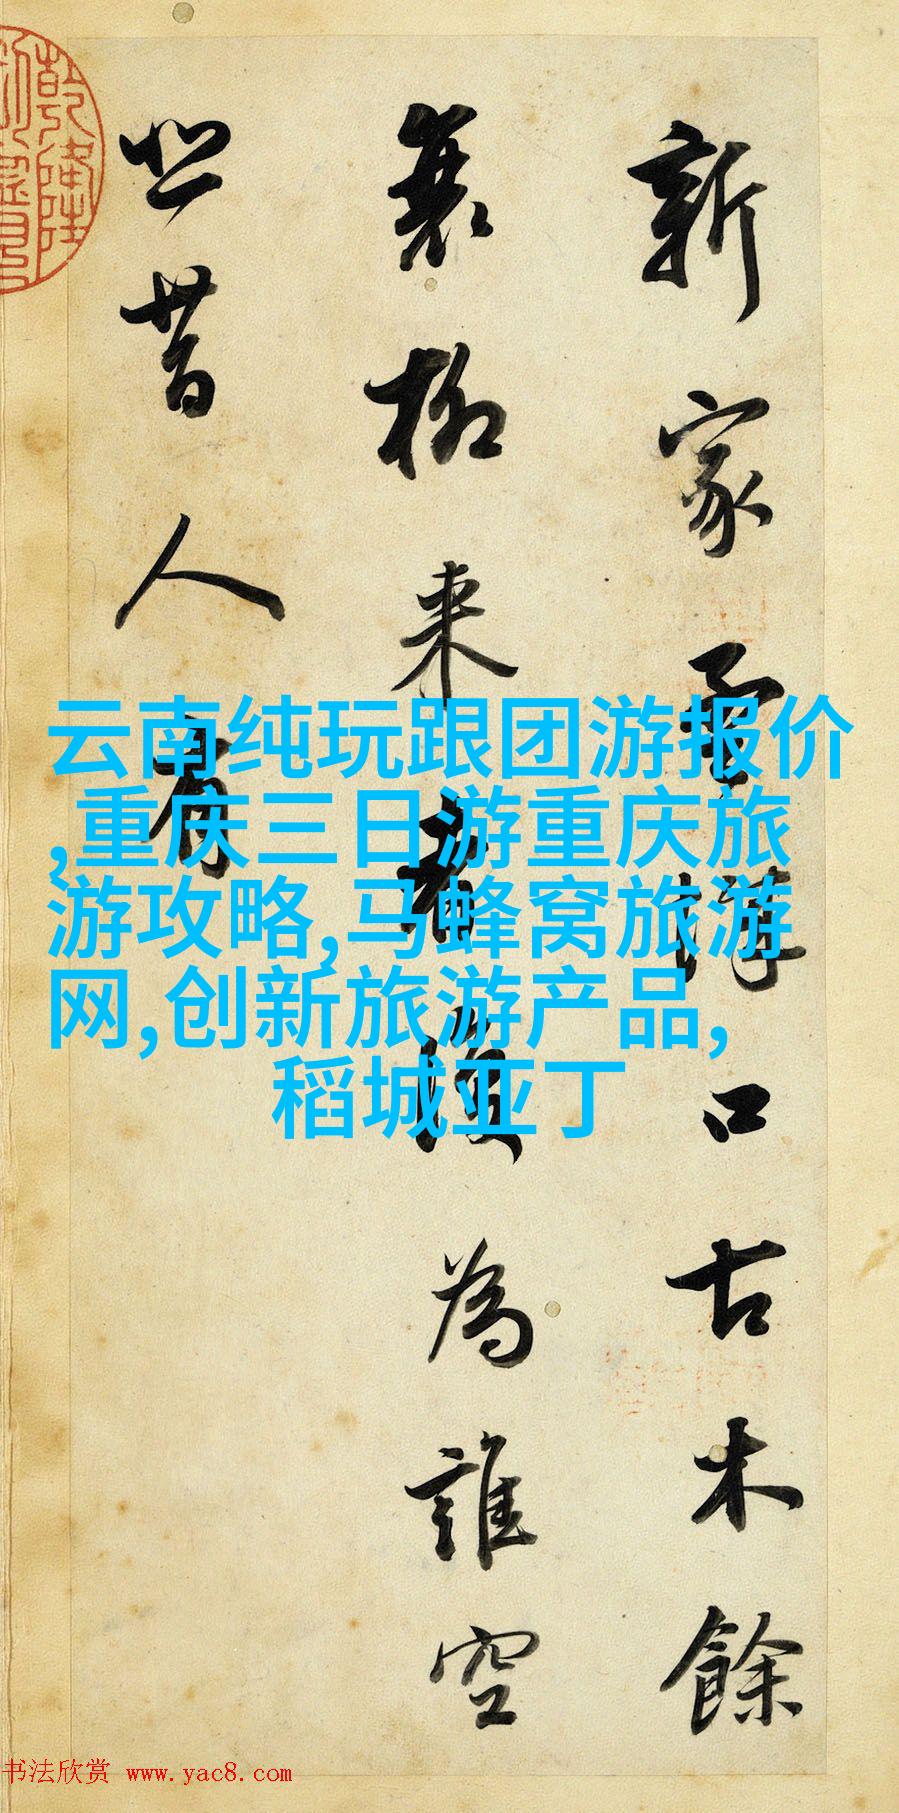 新家孟城口古木餘
衰柳来者復為誰空
悲昔人有
乾隆
云南纯玩跟团游报价
,重庆三日游重庆旅
游攻略,马蜂窝旅游
网,创新旅游产品,
稻城亚丁
书法欣赏 www.yac8.com